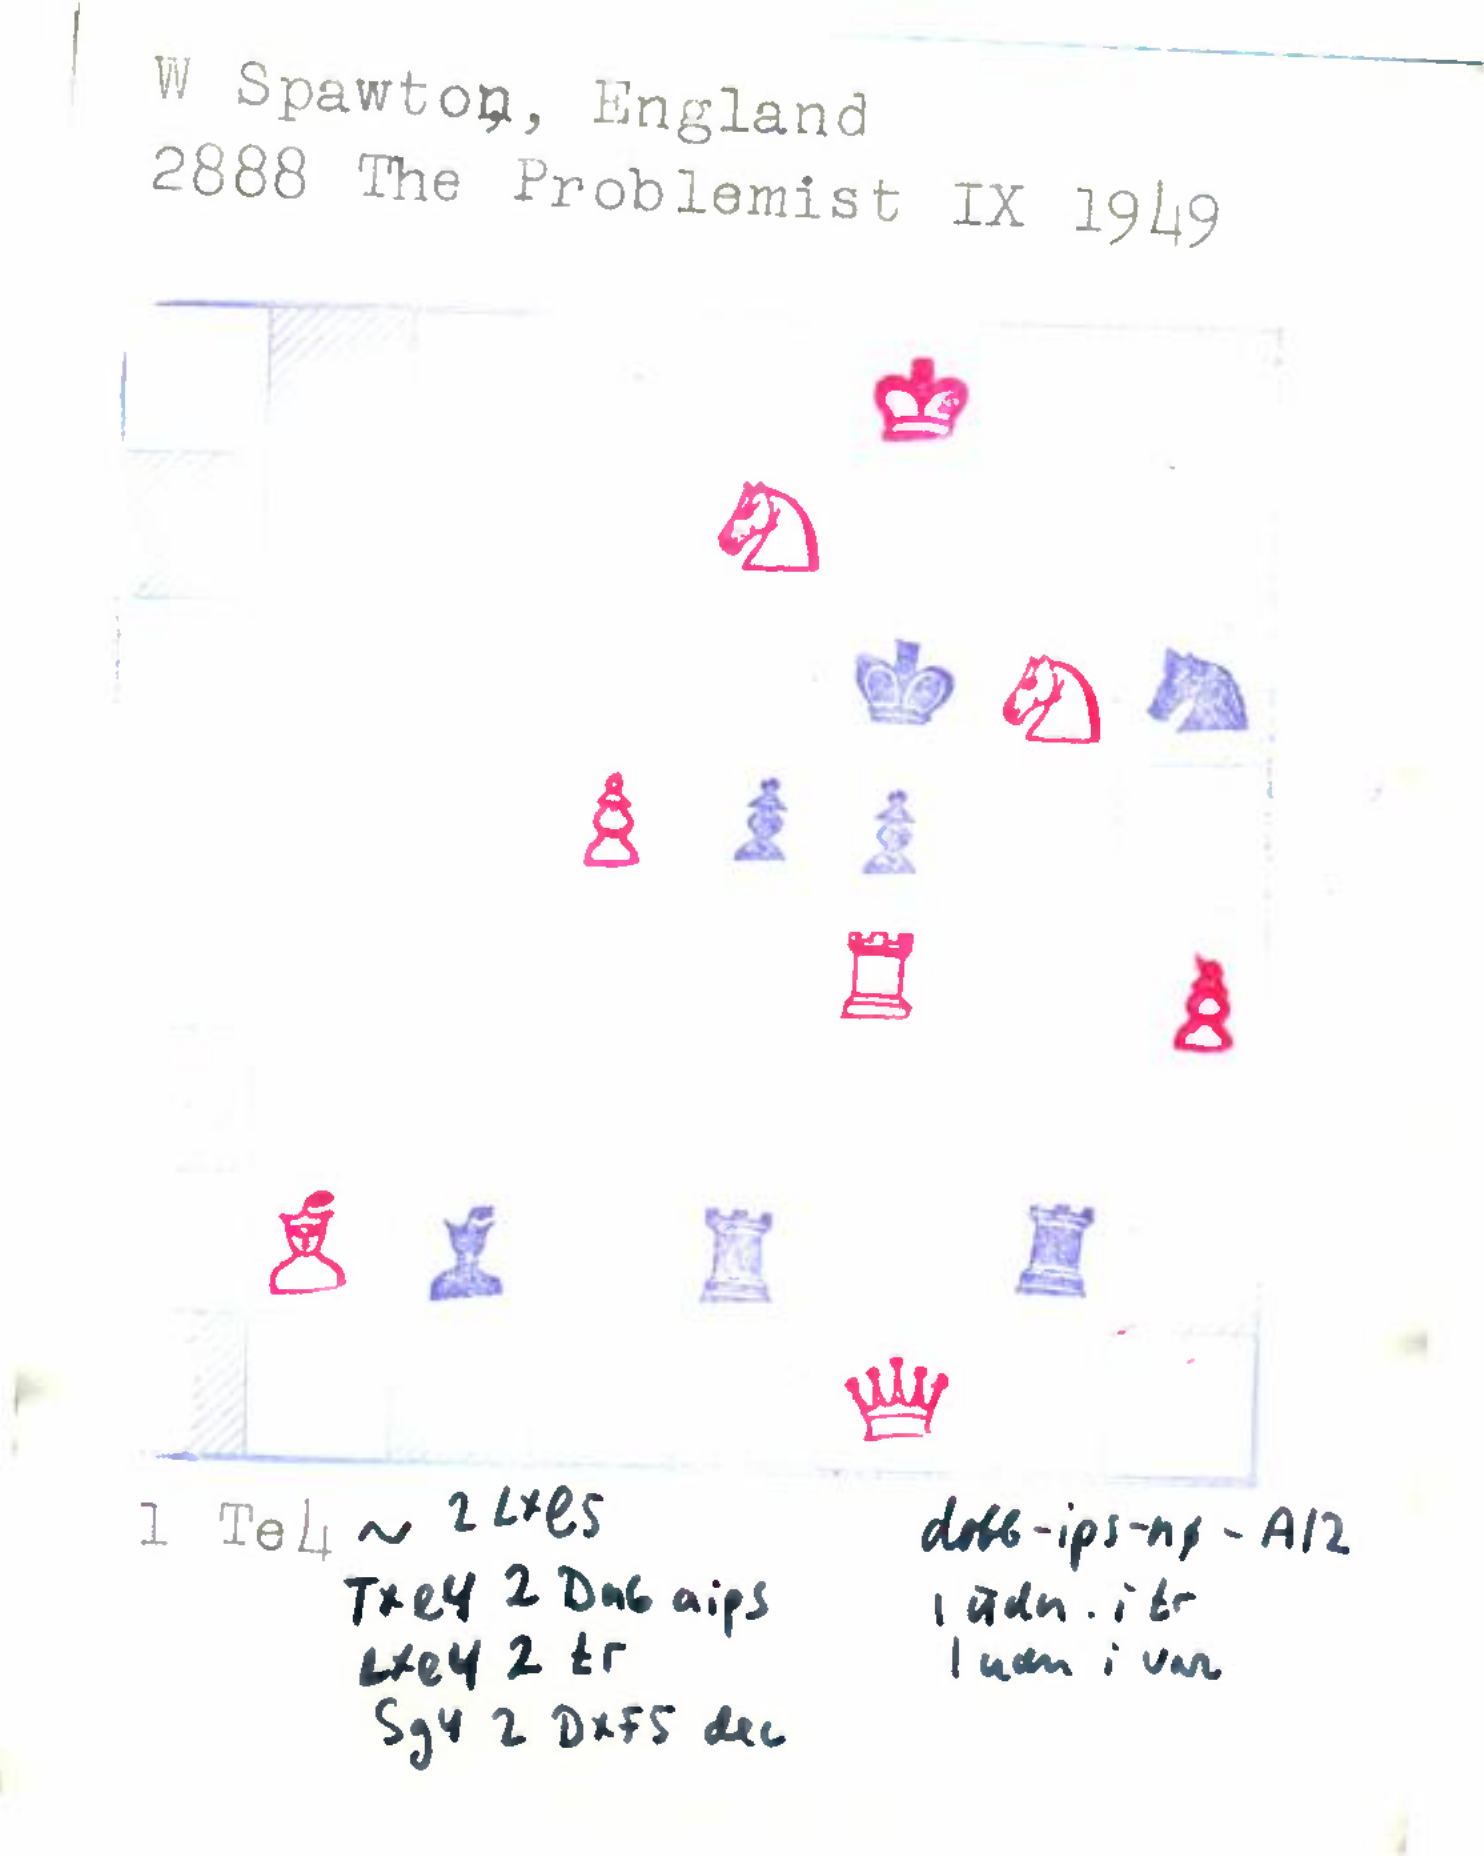 W Spawton, England
2888 The Problemist IX 1949
1 Te4 ~ 2 Lxe5
Txe4 2 Db6 aips
Lxe4 2 tr
Sg4 2 Dxf5 dec
dobb-ips-nø - A/2
1 udn. i tr
1 udn i var